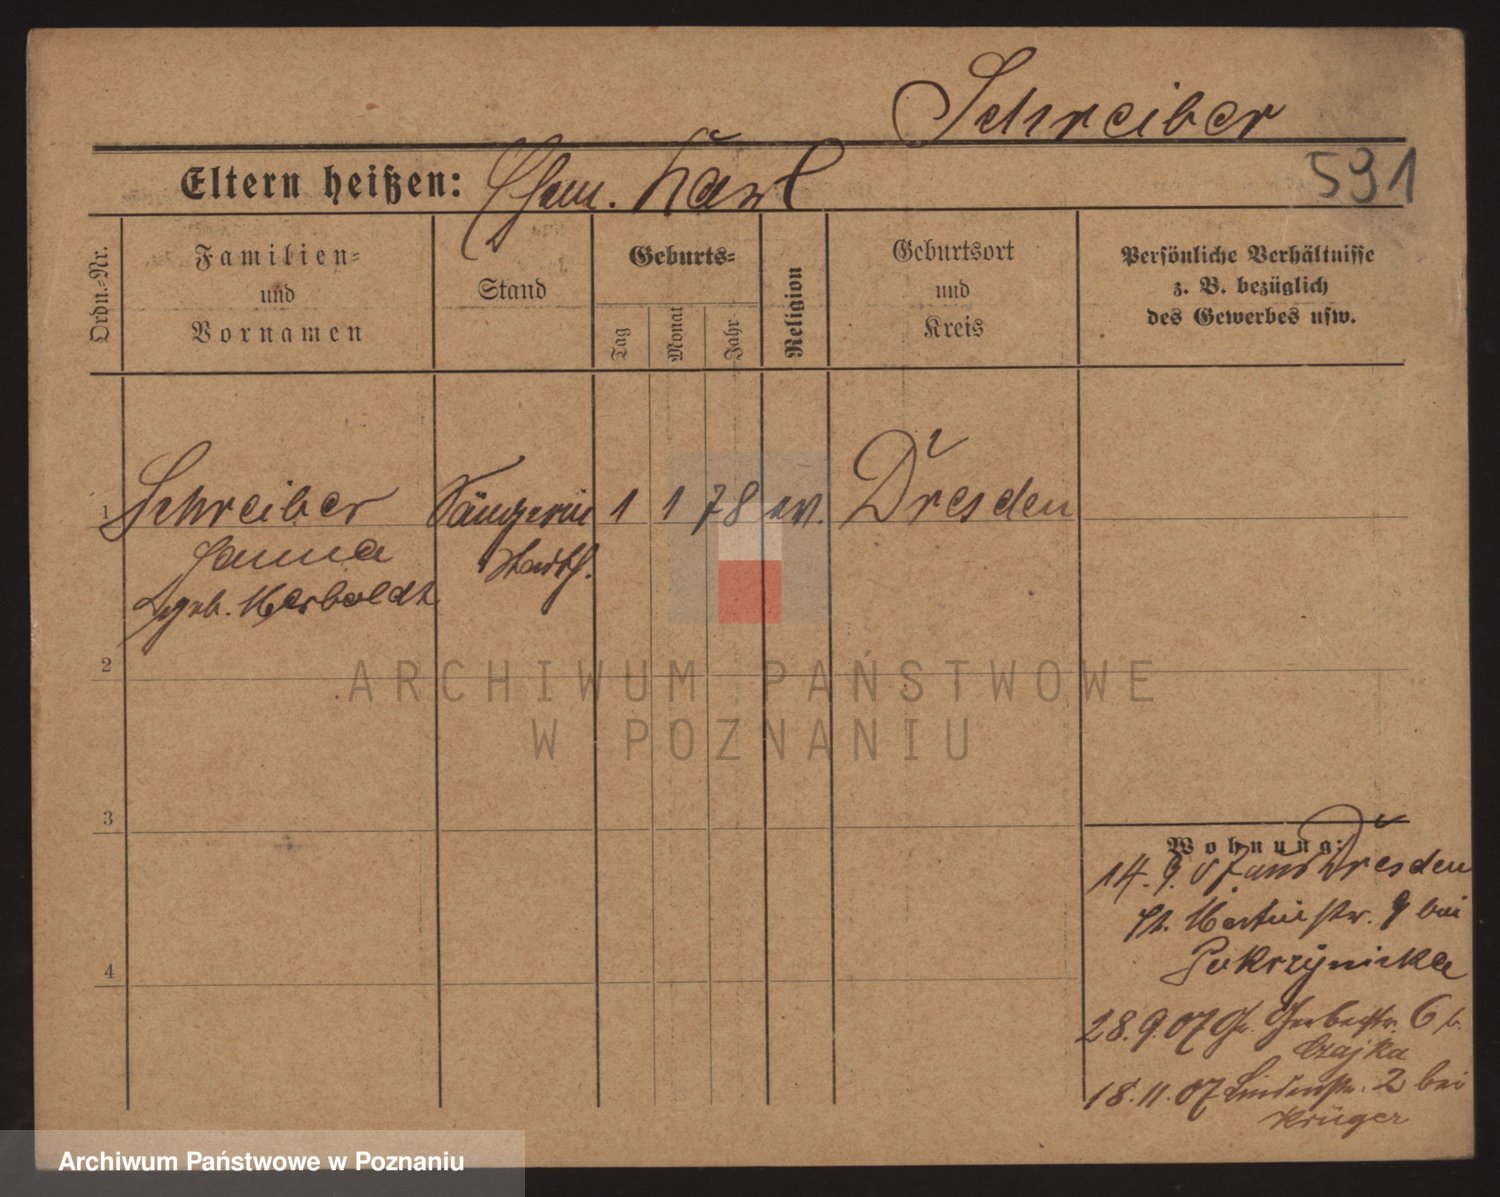 Schreiber
591
Eltern heißen: Ehem. Karl
Ordn.-Nr.
Familien-
und
Vornamen
Stand
Geburts-
Tag
Monat
Jahr
Religion
Geburtsort
und
Kreis
Persönliche Verhältnisse
z. B. bezüglich
des Gewerbes usw.
1 Schreiber Sängerin 1 1 78 ev. Dresden
Hanna
geb. Merboldt
2
3
4
Wohnung:
14.9.07 aus Dresden
St. Martinstr. 9 bei
Pokrzywnicka
28.9.07 Gr. Gerberstr. 6 b.
Czajka
18.11.07 Lindenstr. 2 bei
Krüger
ARCHIWUM PAŃSTWOWE
W POZNANIU
Archiwum Państwowe w Poznaniu